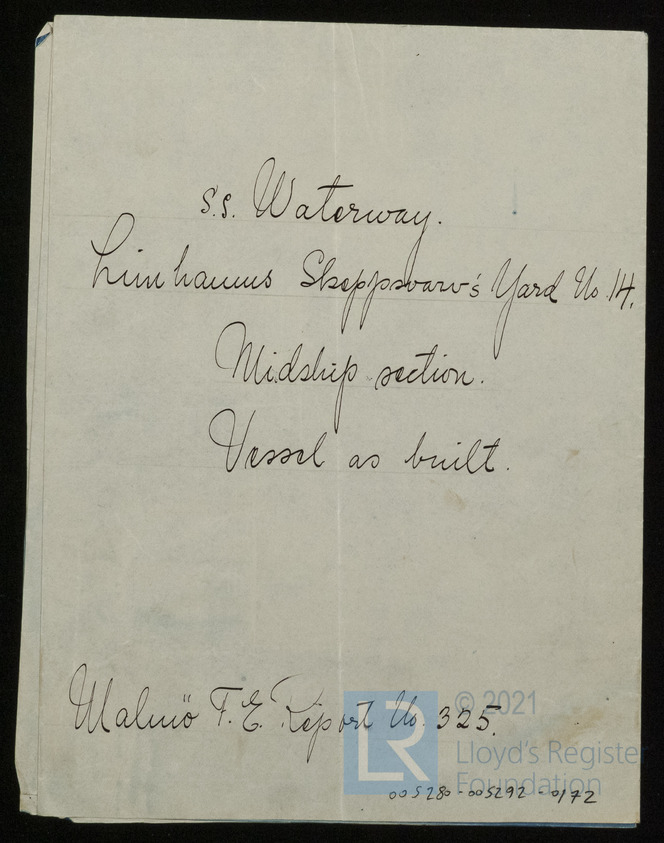 s.s. Waterway.
Limhamns Skeppsvarv's Yard No. 14.
Midship section.
Vessel as built.
Malmö F.E. Report No. 325.
© 2021
LR
Lloyd's Register
Foundation
005280-005292-0172